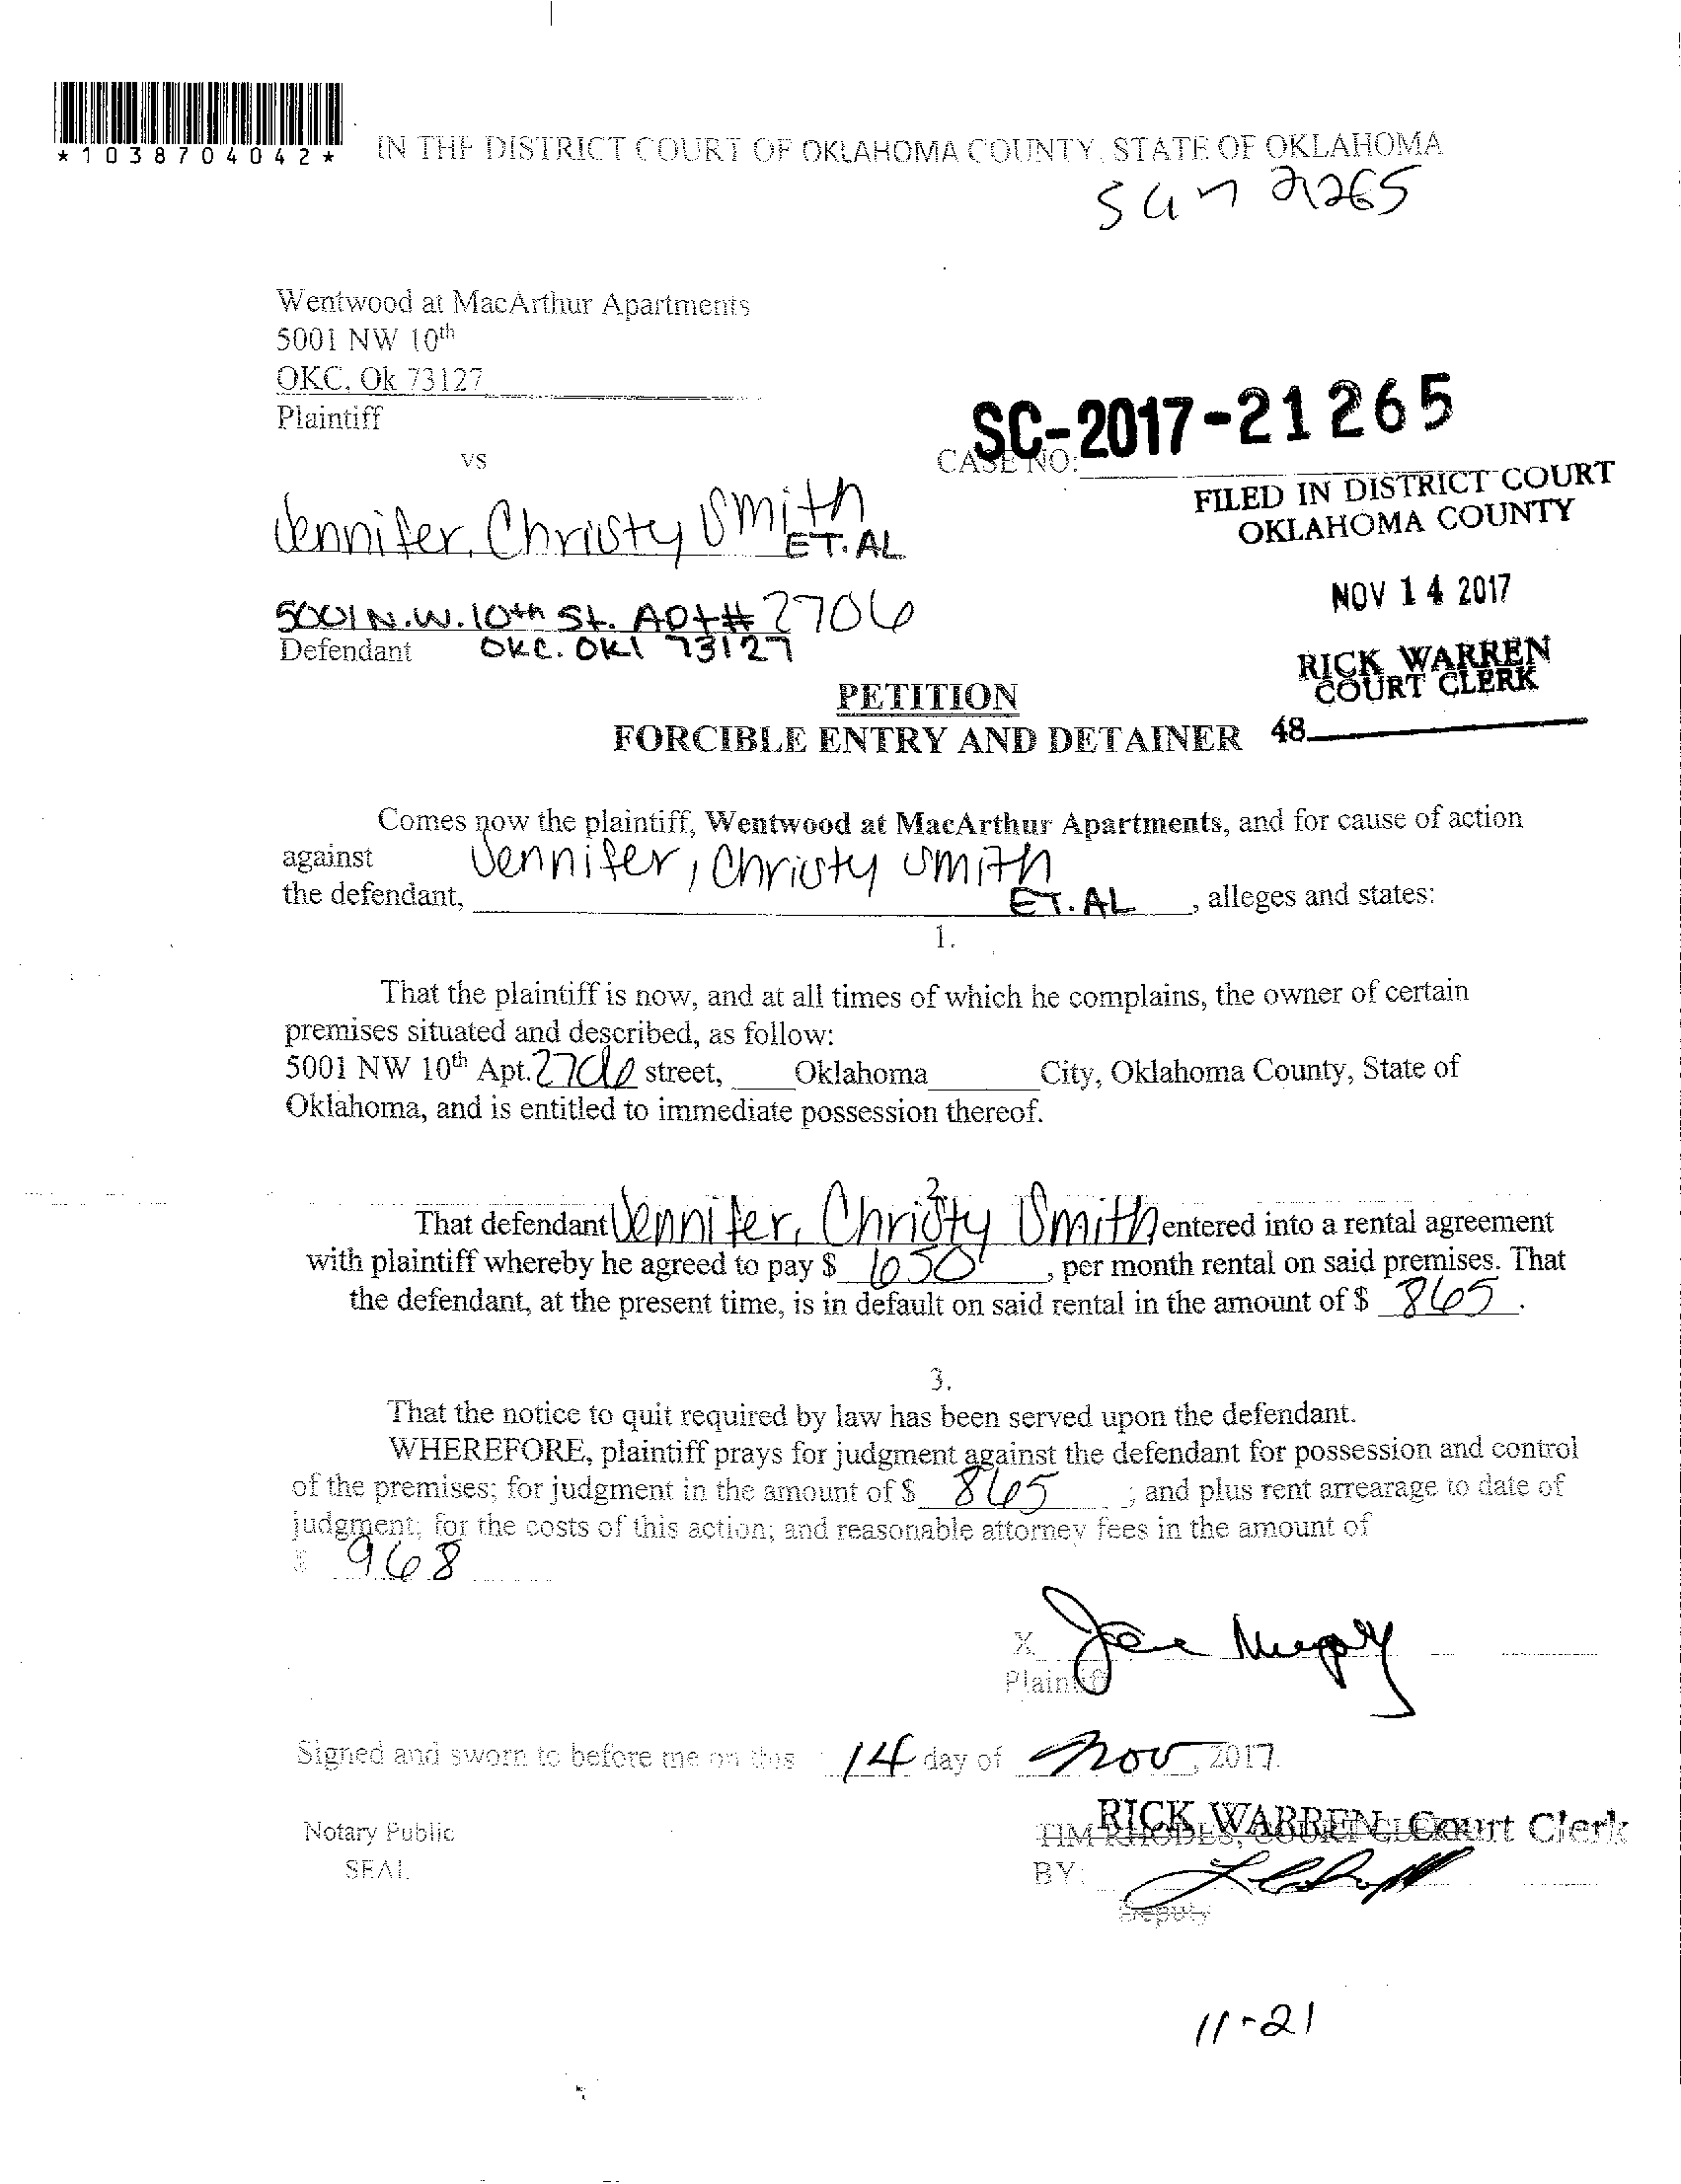 *1038704042*
IN THE DISTRICT COURT OF OKLAHOMA COUNTY, STATE OF OKLAHOMA
Wentwood at MacArthur Apartments
5001 NW 10th
OKC, Ok 73127
Plaintiff
vs
CASE NO: SC-2017-21265
FILED IN DISTRICT COURT
OKLAHOMA COUNTY
Jennifer, Christy Smith
ET. AL
NOV 14 2017
5001 N.W. 10th St. Apt# 2706
Defendant OKC. OKl 73127
RICK WARREN
COURT CLERK
PETITION
FORCIBLE ENTRY AND DETAINER
48
Comes now the plaintiff, Wentwood at MacArthur Apartments, and for cause of action
against Jennifer, Christy Smith
the defendant, ET. AL , alleges and states:
1.
That the plaintiff is now, and at all times of which he complains, the owner of certain
premises situated and described, as follow:
5001 NW 10th Apt. 2706 street, Oklahoma City, Oklahoma County, State of
Oklahoma, and is entitled to immediate possession thereof.
2
That defendant Jennifer, Christy Smith entered into a rental agreement
with plaintiff whereby he agreed to pay $ 650 , per month rental on said premises. That
the defendant, at the present time, is in default on said rental in the amount of $ 865 .
3.
That the notice to quit required by law has been served upon the defendant.
WHEREFORE, plaintiff prays for judgment against the defendant for possession and control
of the premises; for judgment in the amount of $ 865 ; and plus rent arrearage to date of
judgment; for the costs of this action; and reasonable attorney fees in the amount of
$ 968
X
Plaintiff
Signed and sworn to before me on this 14 day of Nov, 2017.
RICK WARREN, Court Clerk
Notary Public TIM RHODES, COURT CLERK
SEAL BY:
Deputy
11-21